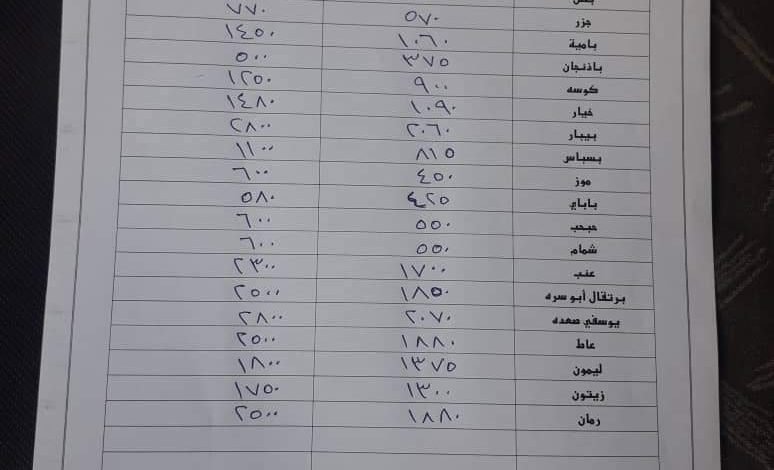 جزر ٥٧٠ ٧٧٠
بامية ١٠٦٠ ١٤٥٠
باذنجان ٣٧٥ ٥٠٠
كوسه ٩٠٠ ١٢٥٠
خيار ١٠٩٠ ١٤٨٠
بيبار ٢٠٦٠ ٢٨٠٠
بسباس ٨١٥ ١١٠٠
موز ٤٥٠ ٦٠٠
باباي ٤٢٥ ٥٨٠
حبحب ٥٥٠ ٦٠٠
شمام ٥٥٠ ٦٠٠
عنب ١٧٠٠ ٢٣٠٠
برتقال أبو سره ١٨٥٠ ٢٥٠٠
يوسفي صعده ٢٠٧٠ ٢٨٠٠
عاط ١٨٨٠ ٢٥٠٠
ليمون ١٣٧٥ ١٨٠٠
زيتون ١٣٠٠ ١٧٥٠
رمان ١٨٨٠ ٢٥٠٠